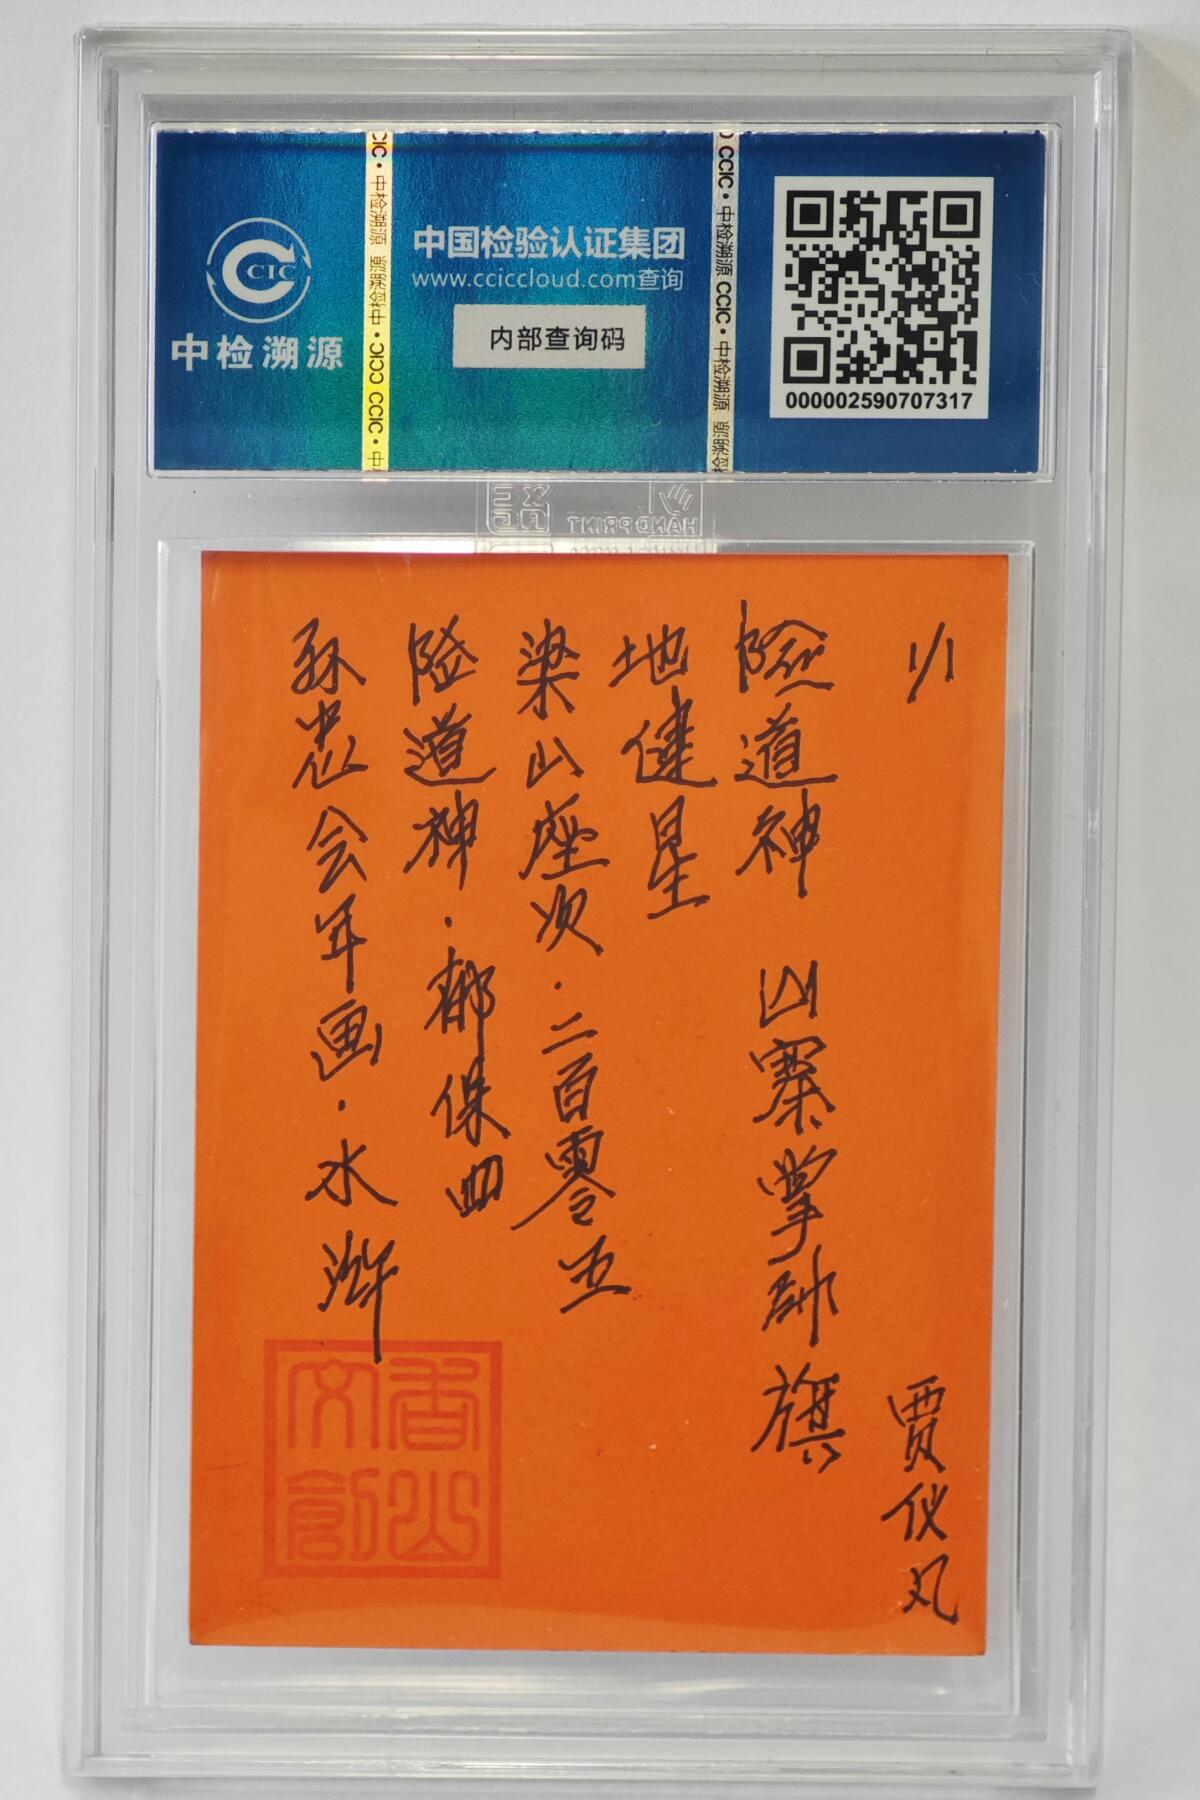 CCIC
中检溯源
中国检验认证集团
www.cciccloud.com查询
内部查询码
000002590707317
CCIC · 中检溯源 CCIC · 中检溯源
HAND PRINT
1/1
險道神 山寨掌帥旗
地健星
梁山座次·二百零五
险道神·郁保四
孙忠会年画·水浒
贾仪丸
香山
文創